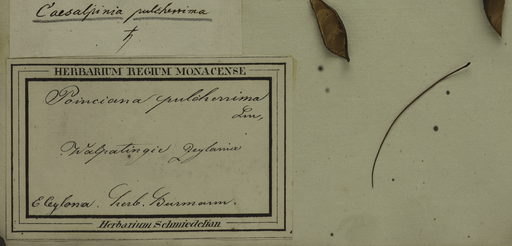 Caesalpinia pulcherrima
HERBARIUM REGIUM MONACENSE
Poinciana pulcherrima
Lin,
Walpatingie Zeylaniæ
E Ceylona. herb. Burmann.
Herbarium Schmiedelian